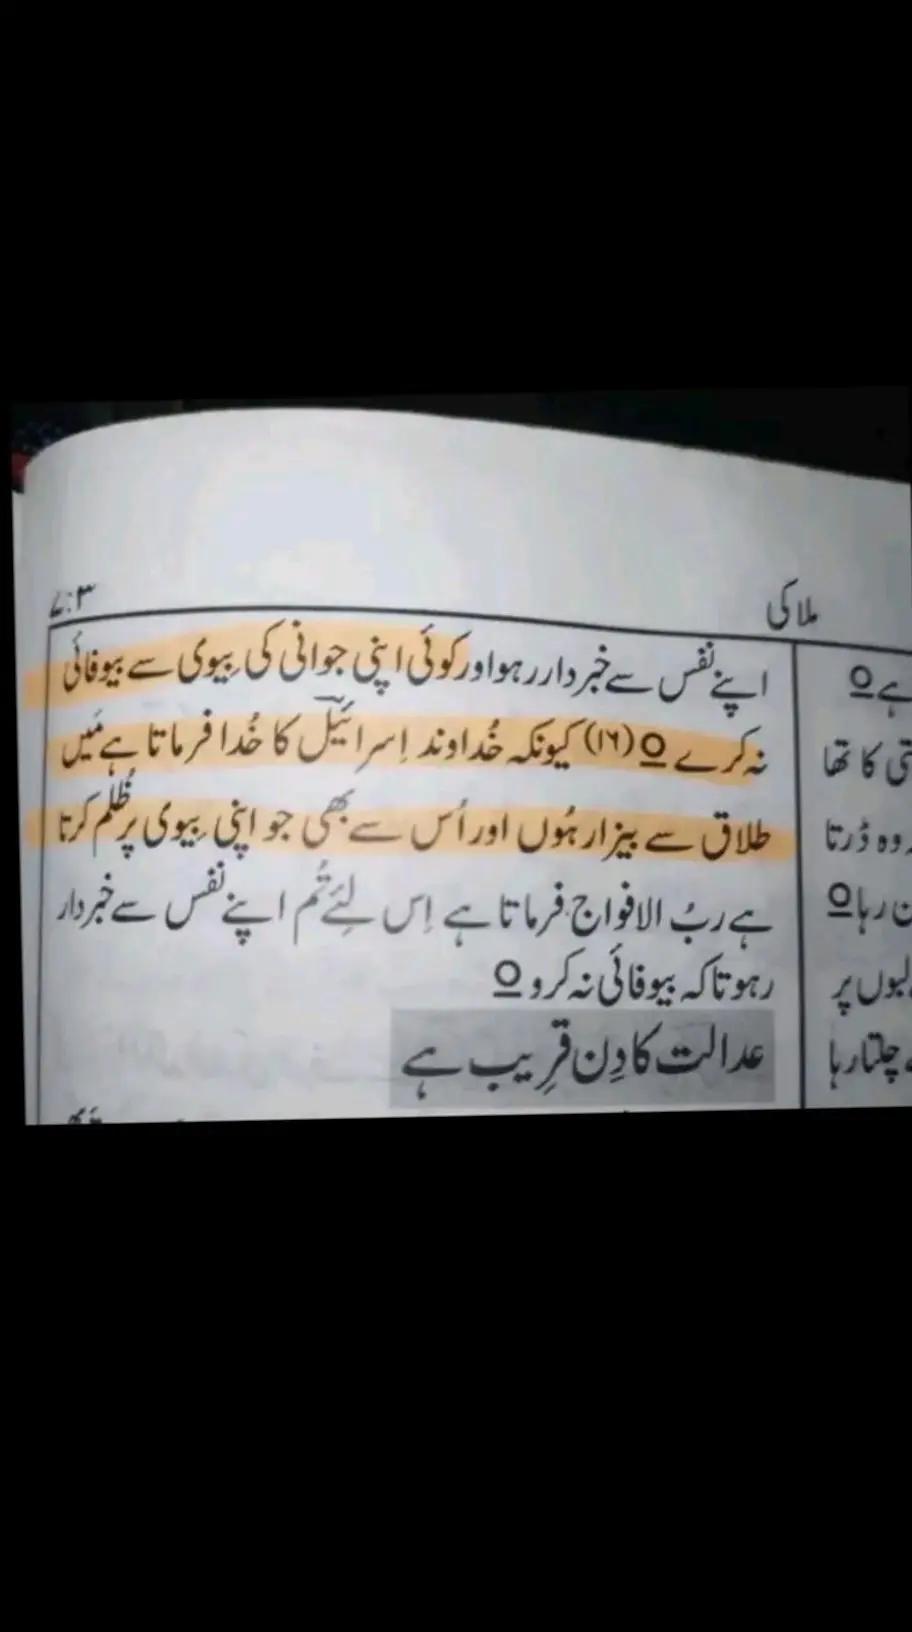 ملاکی
۷:۳
اپنے نفس سے خبردار رہو اور کوئی اپنی جوانی کی بِیوی سے بیوفائی
نہ کرے O (۱۶) کیونکہ خُداوند اِسرائیل کا خُدا فرماتا ہے مَیں
طلاق سے بیزار ہُوں اور اُس سے بھی جو اپنی بِیوی پر ظُلم کرتا
ہے ربُ الافواج فرماتا ہے اِس لِئے تُم اپنے نفس سے خبردار
رہو تاکہ بیوفائی نہ کرو O
عدالت کا دِن قرِیب ہے
ہے O
کا تھا
وہ ڈرتا
رہا O
لبوں پر
چلتا رہا